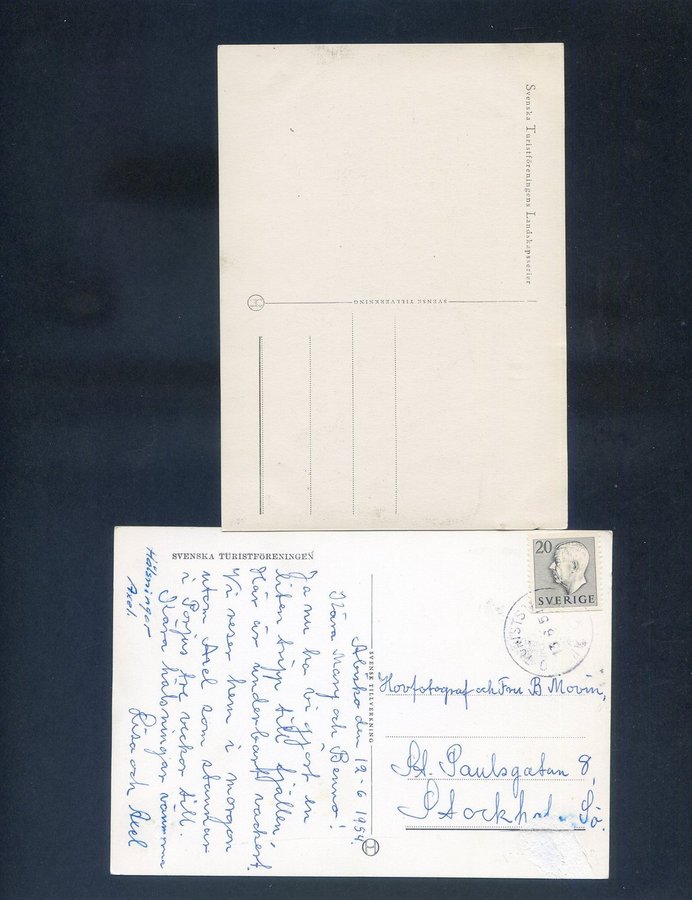 Svenska Turistföreningens Landskapsserier
SVENSK TILLVERKNING
SVENSKA TURISTFÖRENINGEN
Abisko den 12-6 1954
Kära Mary och Benno!
Ja nu ha vi gjort en
liten tripp till fjällen
Här är underbart vackert.
Vi reser hem i morgon
utom Axel som stannar
i Porjus två veckor till.
Kära hälsningar
Lisa och Axel
Hälsningar
SVENSK TILLVERKNING
20
SVERIGE
Hovfotograf och Fru B Movin,
St. Paulsgatan 8,
Stockholm. Sö.